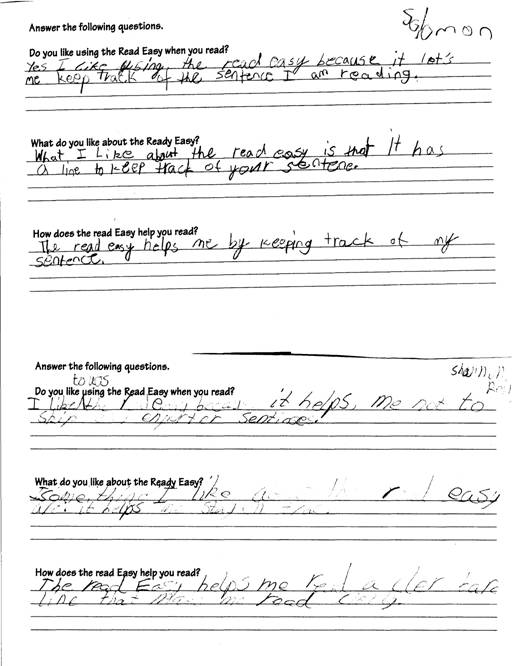 Solomon
Answer the following questions.
Do you like using the Read Easy when you read?
Yes I like using, the read easy because it let's
me keep track of the sentence I am reading.
What do you like about the Ready Easy?
What I Like about the read easy is that It has
a line to keep track of your sentene.
How does the read Easy help you read?
The read easy helps me by keeping track of my
sentence.
Answer the following questions.
Do you like using the Read Easy when you read?
I like it helps, me not to
What do you like about the Ready Easy?
I like easy
it helps
How does the read Easy help you read?
The read Easy helps me a
line that read